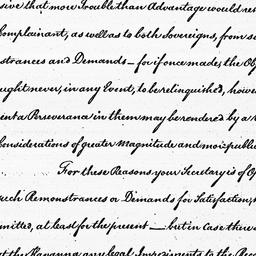 sive that more Trouble than Advantage would res
Complainant, as well as to both Sovereigns, from su
strances and Demands — for if once made, the Ob
ught never, in any Event, to be relinquished, howe
ent a Perseverance in them may be rendered by a
Considerations of greater Magnitude and more publi
For these Reasons your Secretary is of Op
such Remonstrances or Demands for Satisfaction,
mitted, at least for the present — but in case there
at the Havanna any legal Impediments to the Rec